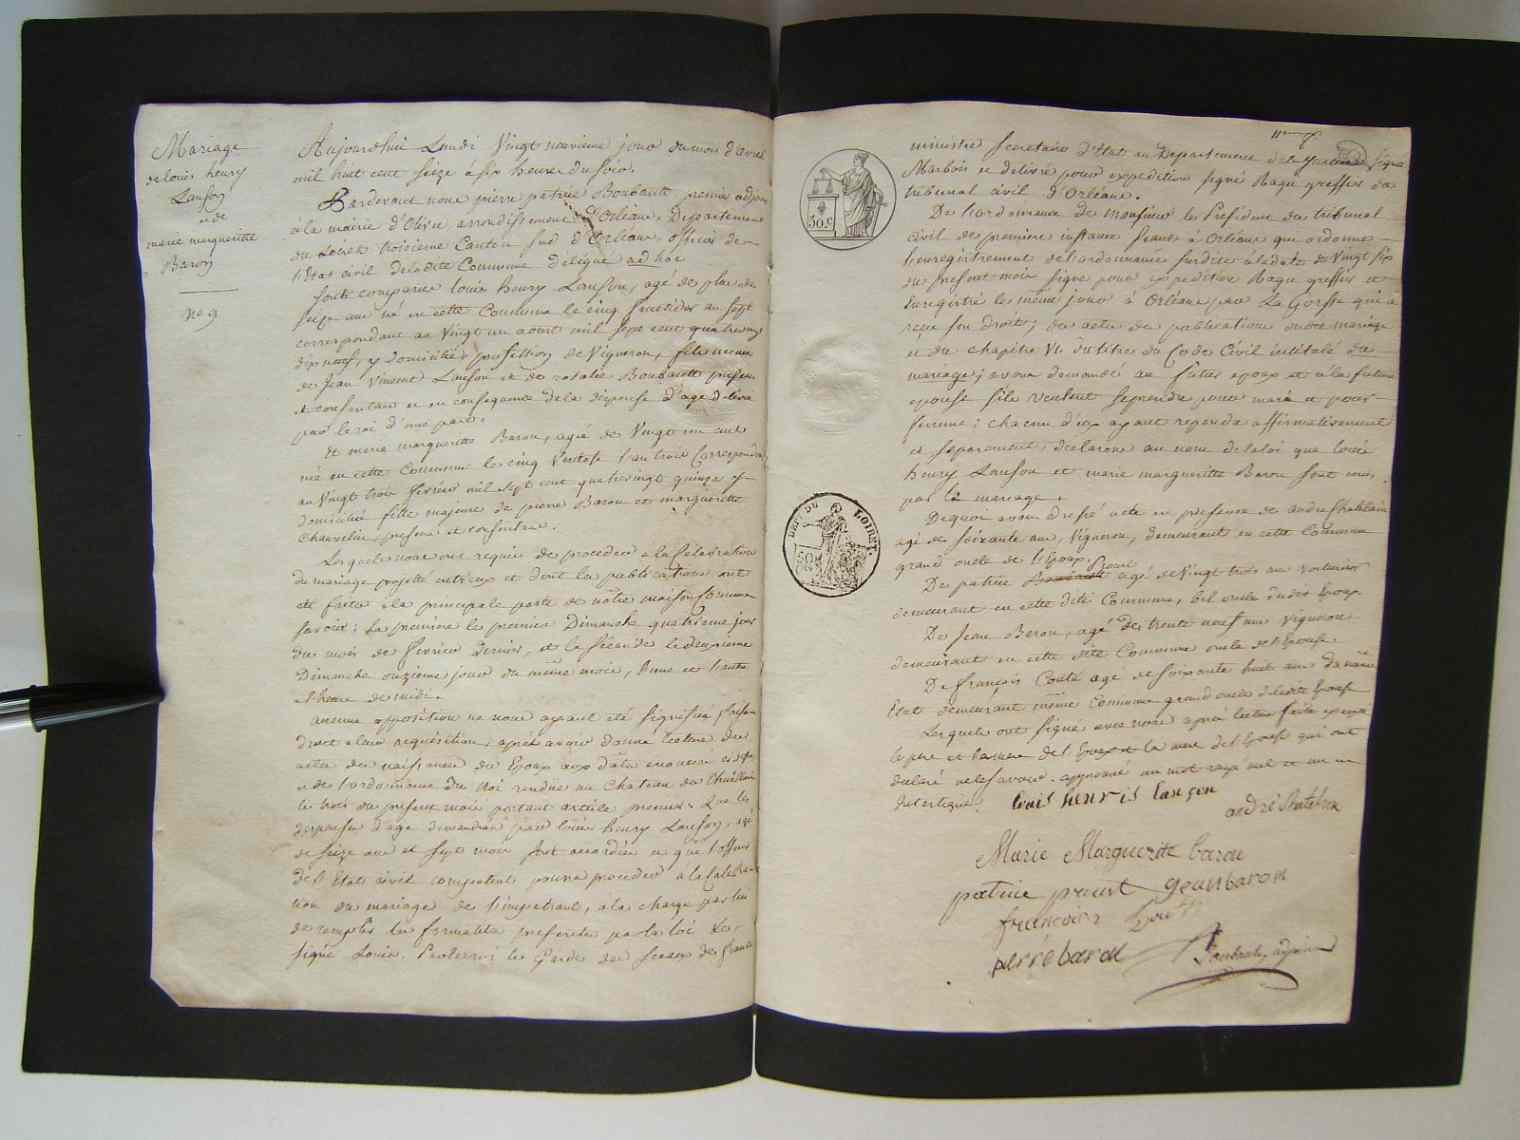 Mariage
de louis henry
Lanson
et de
marie margueritte
Baron
no 9
Aujourdhui Lundi Vingt neuvieme jour du mois d'avril
mil huit cent seize à six heures du soir
Pardevant nous pierre patrice Boubault premier adjoint
à la mairie d'Olivet arrondissement d'Orléans, Departement
du Loiret troisieme Canton sud d'Orléans officier de
l'Etat civil de ladite Commune délégué ad hoc
sont comparus louis henry Lanson, agé de plus de
seize ans né en cette Commune le cinq fructidor an sept
correspondant au Vingt un aout mil sept cent quatrevingt
dix neuf, y domicilié, profession de Vigneron, fils mineur
de jean Vincent Lanson et de rosalie Boubault presens
et consentans et en consequence de la dispense d'age delivré
par le roi d'une part.
Et marie margueritte Baron, agée de Vingt un ans
née en cette Commune le cinq Ventose l'an trois Correspondant
au Vingt trois fevrier mil sept cent quatrevingt quinze y
domiciliée fille majeure de pierre Baron et margueritte
Chauvelin, presens et consentans.
Lesquels nous ont requis de proceder a la Celebration
du mariage projetté entreux et dont les publications ont
eté faites a la principale porte de nôtre maison Commune
savoir; la premiere le premier Dimanche quatrieme jour
du mois de fevrier dernier, et la seconde le deuxieme
Dimanche onzieme jour du même mois, Dune et l'autre
a l'heure de midi.
aucune opposition ne nous ayant eté signifiée faisant
droit a leur requisition, après avoir donné lecture des
actes de naissance des Epoux aux dates enoncées ci dessus
et de l'ordonnance du Roi rendue au Chateau des Thuilleries
le trois du present mois portant article premier. Que les
dispenses d'age demandées par louis henry Lanson, agé
de seize ans et sept mois sont accordées et que l'officier
de l'Etat civil competent pourra proceder a la Celebra
tion du mariage de l'impetrant, a la charge par lui
de remplir les formalités prescrites par la loi
signé Louis. le Garde des Sceaux de france
ministre secretaire d'Etat au Departement de la justice signé
Marbois et delivré pour expedition signé Ragu greffier du
tribunal civil d'Orléans.
De l'ordonnance de monsieur le President du tribunal
civil de premiere instance seant à Orléans qui ordonne
l'enregistrement de l'ordonnance susdite à la date du Vingt six
du present mois signé pour expedition Ragu greffier et
enregistré le même jour à Orléans par qui a
reçu son droit; des actes de publications du dit mariage
et du chapitre VI du titre du Code Civil intitulé du
mariage; avons demandé au futur epoux et a la future
epouse s'ils veulent se prendre pour mari et pour
femme: chacun d'eux ayant repondu affirmativement
et separement, declarons au nom de la loi que louis
henry Lanson et marie margueritte Baron sont unis
par le mariage.
De quoi avons dressé acte en presence de andré Chatelain
agé de soixante ans, Vigneron, demeurant en cette Commune
grand oncle de l'Epoux.
De patrice Proust agé de Vingt trois ans voiturier
demeurant en cette dite Commune, bel oncle dudit Epoux
De Jean Baron, agé de trente neuf ans Vigneron
demeurant en cette dite Commune oncle de l'Epouse.
De françois Couté agé de soixante huit ans du même
Etat demeurant même Commune grand oncle de ladite Epouse
Lesquels ont signé avec nous après lecture faite excepté
le pere et la mere de l'Epoux et la mere de l'Epouse qui ont
declaré ne le savoir. approuvé un mot rayé nul et un en
interligne.
50.C
DEPT. DU LOIRET.
50
louis henris lançon
andré Chatelain
Marie Margueritte baron
patrice proust
jean baron
francois
pierre baron
Boubault adjoint